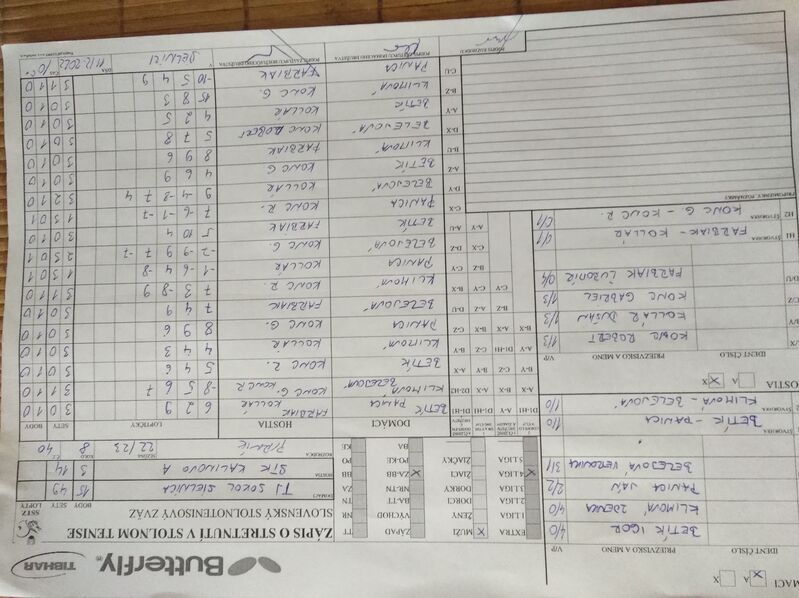 TIBHAR Butterfly
ZÁPIS O STRETNUTÍ V STOLNOM TENISE
SLOVENSKÝ STOLNOTENISOVÝ ZVÄZ
SSTZ
BODY SETY LOPTY
DOMÁCI TJ SOKOL SIELNICA 15 49
HOSTIA STK KALINOVO A 3 14
SEZÓNA 22/23 8 40
EXTRA MUŽI X ZÁPAD TT
1.LIGA ŽENY VÝCHOD NR
2.LIGA DORCI BA-TT TN
3.LIGA DORKY NR-TN ZA
4.LIGA X ŽIACI ZA-BB X BB
5.LIGA ŽIAČKY PO-KE PO
BA KE
DOMÁCI HOSTIA LOPTIČKY SETY BODY
BETÍK PANICA FARBIAK KOLLÁR 6 2 9 3 0 1 0
KLIMOVÁ BELEJOVÁ KONC G. KONC R -8 5 6 7 3 1 1 0
BETÍK KONC R. 5 4 6 3 0 1 0
KLIMOVÁ KOLLÁR 4 4 3 3 0 1 0
PANICA KONC G. 8 9 6 3 0 1 0
BELEJOVÁ FARBIAK 7 4 9 3 0 1 0
KLIMOVÁ KONC R. 7 3 -8 9 3 1 1 0
PANICA KOLLÁR -1 -6 4 -8 1 3 0 1
BELEJOVÁ KONC G. -2 -9 9 7 -7 2 3 0 1
BETÍK FARBIAK 5 10 4 3 0 1 0
PANICA KONC R. 7 -6 -1 -7 1 3 0 1
BELEJOVÁ KOLLÁR 9 -4 -8 7 4 3 2 1 0
BETÍK KONC G 4 6 9 3 0 1 0
KLIMOVÁ FARBIAK 8 9 6 3 0 1 0
BELEJOVÁ KONC ROBERT 5 7 8 3 0 1 0
BETÍK KOLLÁR 4 2 5 3 0 1 0
KLIMOVÁ KONC G. 15 8 3 3 0 1 0
PANICA FARBIAK -10 5 4 9 3 1 1 0
V SIELNICI DŇA ČAS
A X X
IDENT ČÍSLO PRIEZVISKO A MENO V/P
BETÍK IGOR 4/0
KLIMOVÁ ZDENKA 4/0
PANICA JÁN 2/2
BELEJOVÁ VERONIKA 3/1
BETÍK - PANICA 1/0
KLIMOVÁ - BELEJOVÁ 1/0
A X X
IDENT ČÍSLO PRIEZVISKO A MENO V/P
KONC ROBERT 1/3
KOLLÁR DUŠAN 1/3
KONC GABRIEL 1/3
FARBIAK ĽUBOMÍR 0/4
H1 ŠTVORHRA FARBIAK - KOLLÁR 0/1
H2 ŠTVORHRA KONC G. - KONC R. 0/1
PRIPOMIENKY, POZNÁMKY